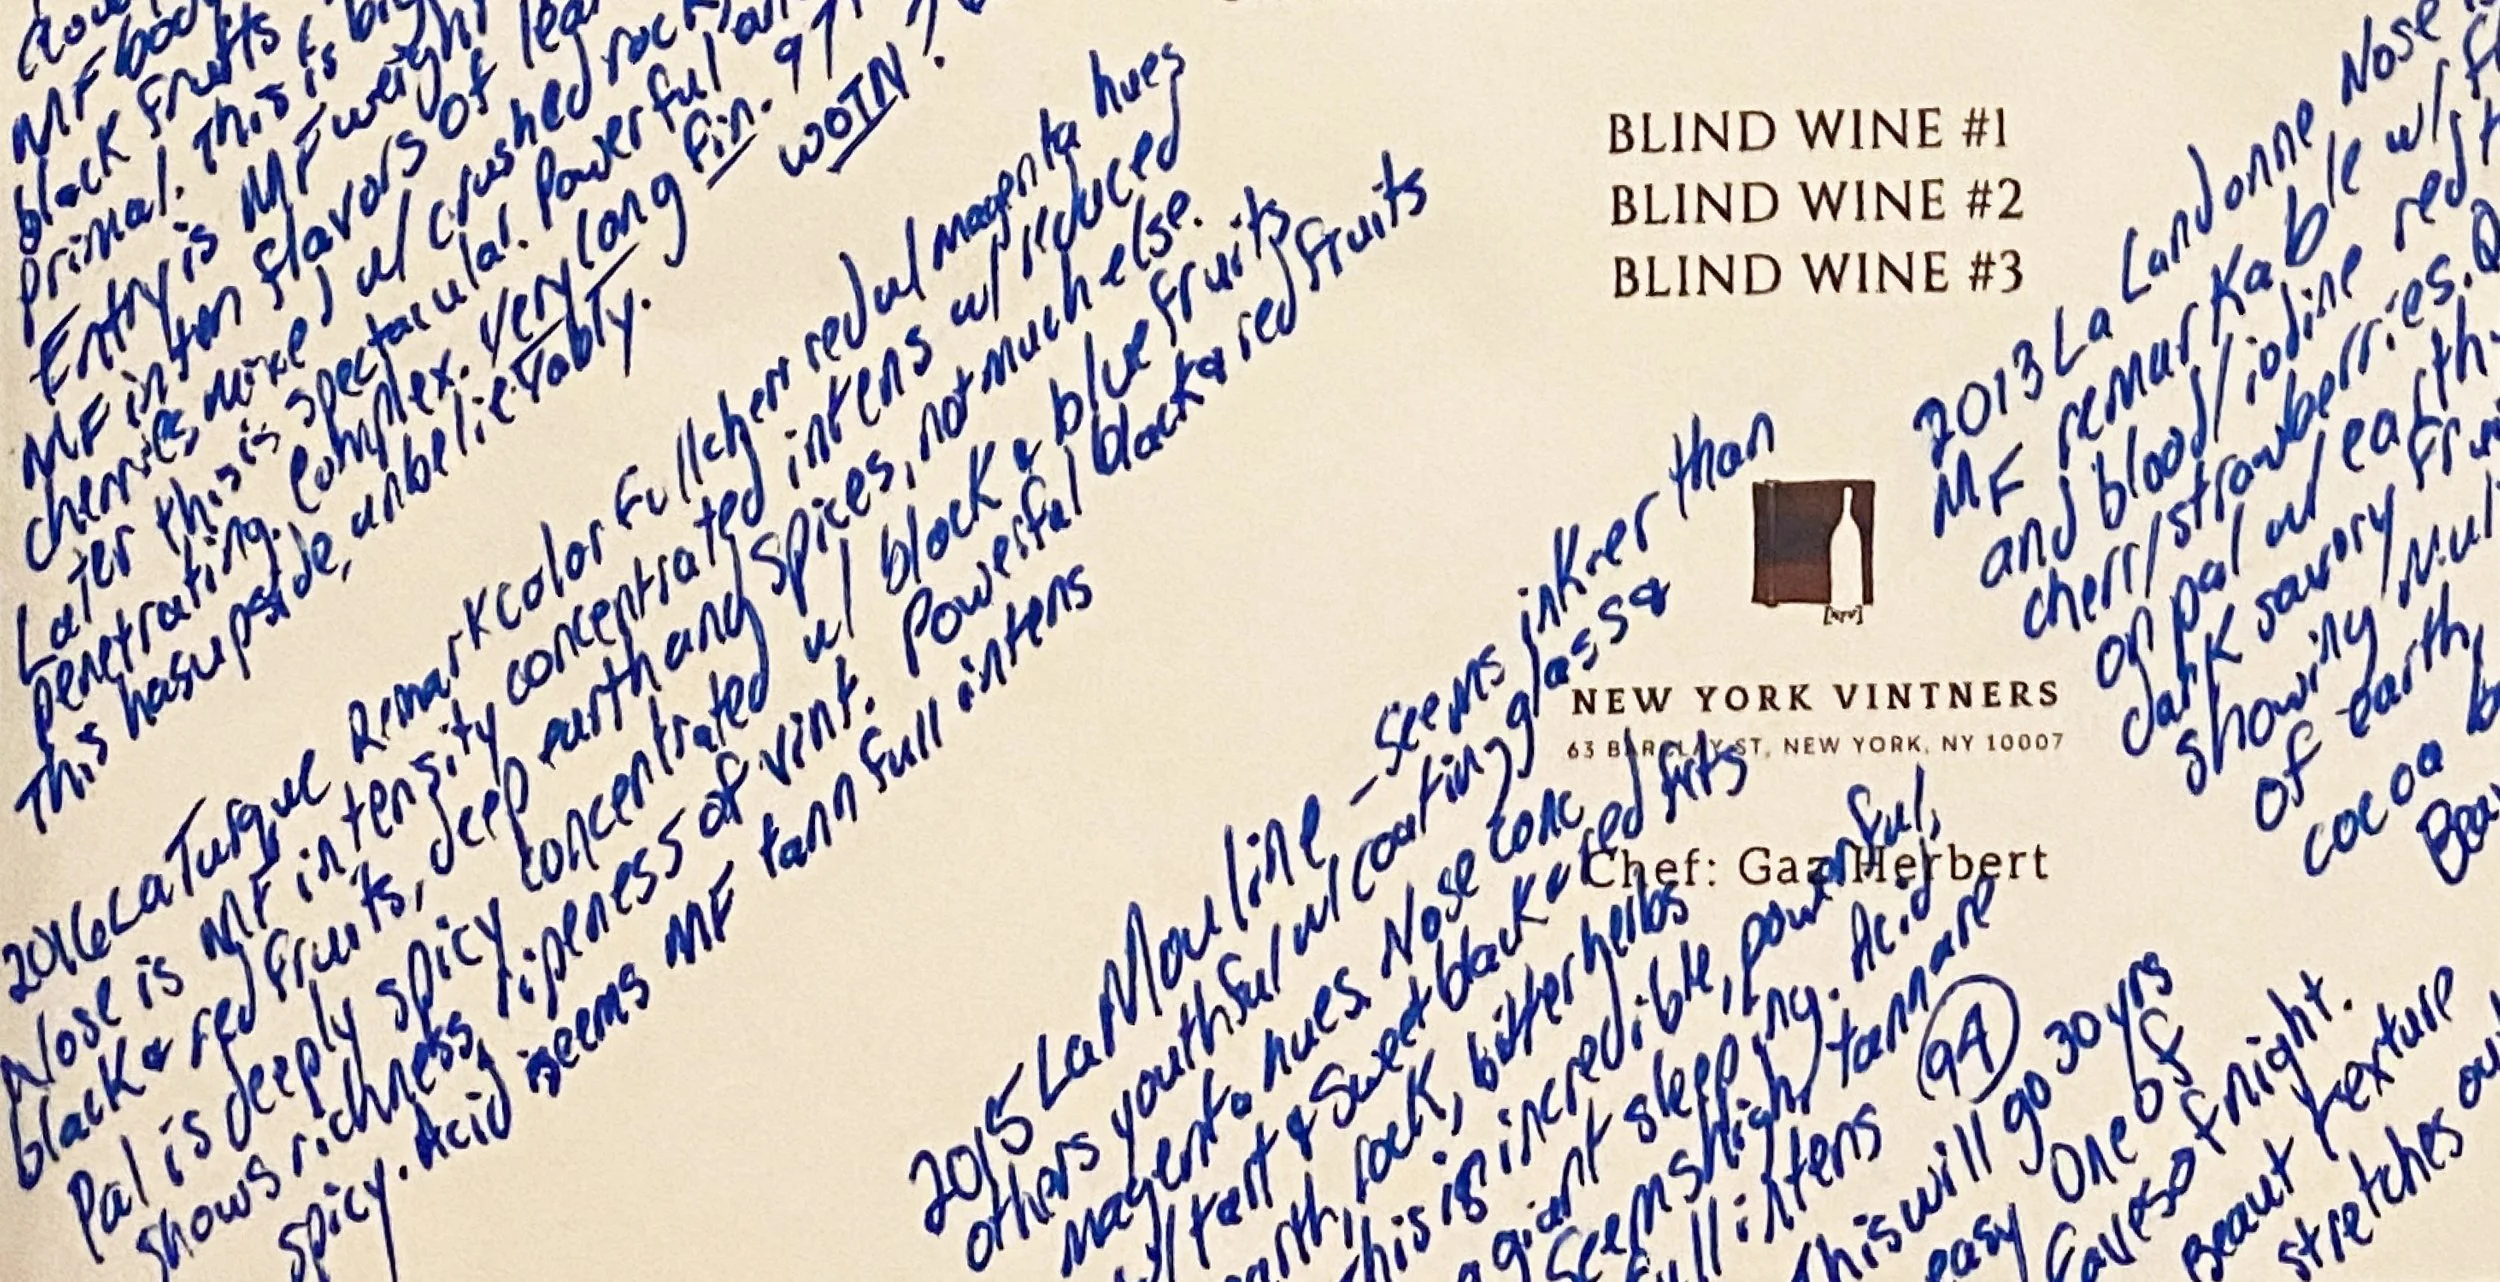 MF body
black fruits
primal. This is big
Entry is MF weight
MF inten flavors of
cherries mixed w/ crushed rock,
Later this is spectacular. Powerful
penetrating. Complex. Very long fin. 97
This has upside, unbelievably. WOTN?
2016 La Turque Remark color full cherr red w/ magenta hues
Nose is MF intensity concentrated intens w/ reduced
black & red fruits, deep earth and spices, not much else.
Pal is deeply spicy concentrated w/ black & blue fruits
shows richness, ripeness of vint. Powerful black & red fruits
spicy. Acid seems MF tann full intens
BLIND WINE #1
BLIND WINE #2
BLIND WINE #3
NEW YORK VINTNERS
63 BARCLAY ST, NEW YORK, NY 10007
Chef: Gaz Herbert
2015 La Mouline – seems inkier than
others youthful w/ coating glass &
magenta hues. Nose conc
w/ tart & sweet black & red frts
earth, rock, bitter herbs
This is incredible, powerful,
a giant sleeping. Acid
seems high tann are
full intens 99
This will go 30 yrs
easy One of
faves of night.
Beaut texture
stretches
2013 La Landonne Nose
MF remarkable w/
and blood/iodine red
cherr/strawberries.
on pal w/ earth
dark savory fruit
showing
of earth,
cocoa